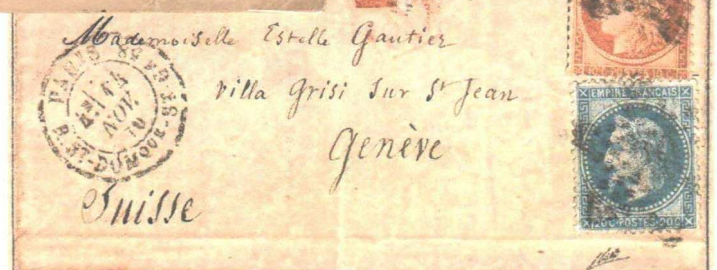 Mademoiselle Estelle Gautier
Villa Grisi sur St Jean
Genève
Suisse
PARIS
14
NOV.
70
R. ST-DOMQUE-ST-Gn N° 58
EMPIRE FRANÇAIS
20c POSTES 20c